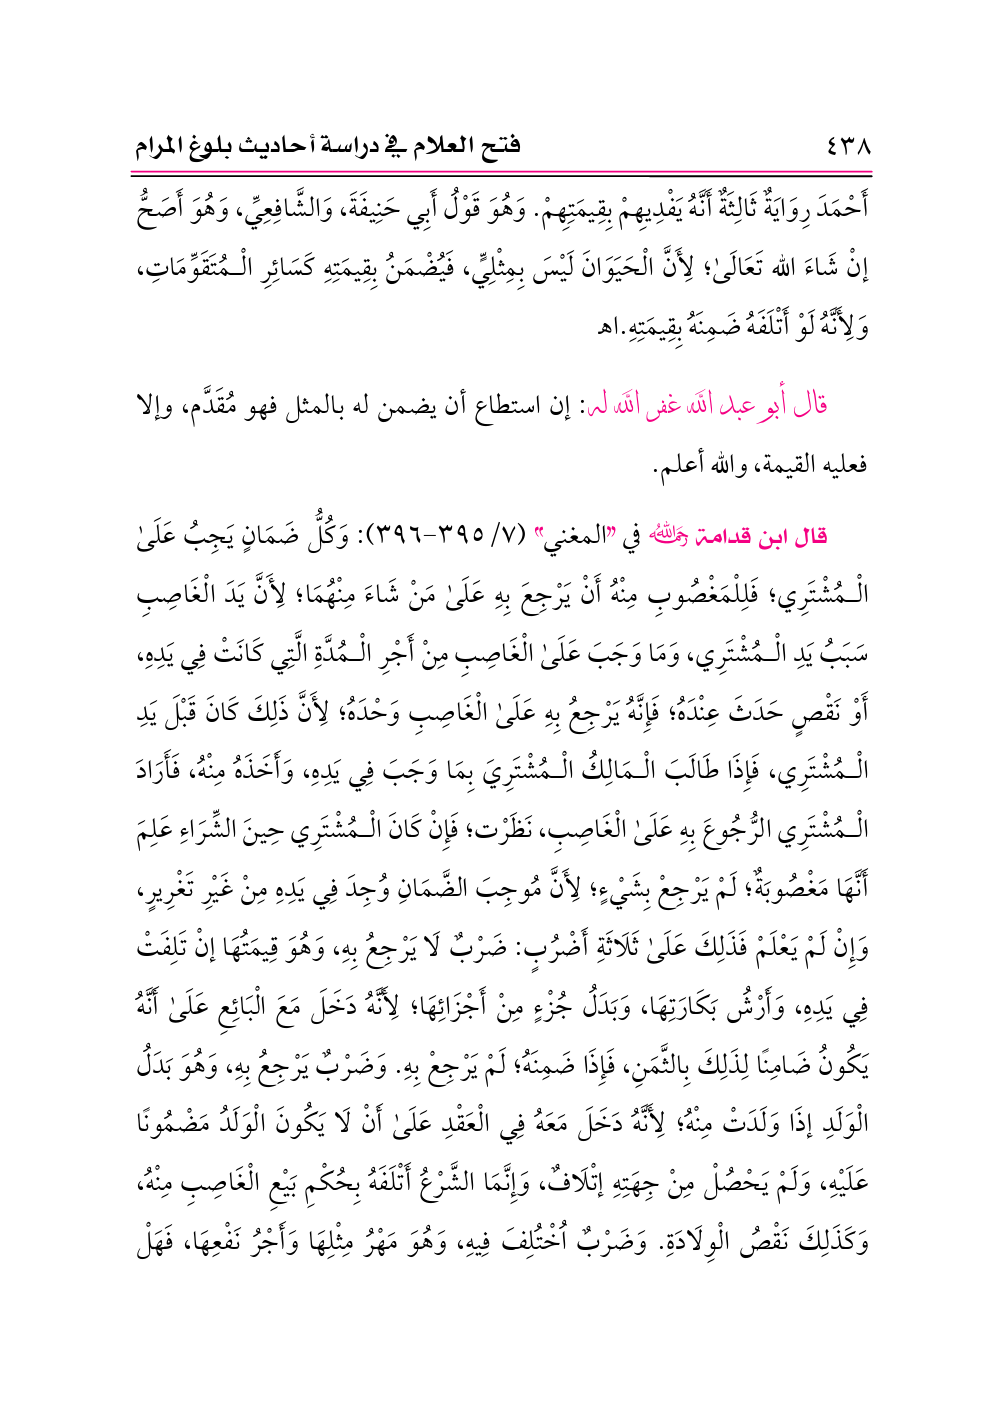 ٤٣٨ فتح العلام في دراسة أحاديث بلوغ المرام
أَحْمَدَ رِوَايَةٌ ثَالِثَةٌ أَنَّهُ يَفْدِيهِمْ بِقِيمَتِهِمْ. وَهُوَ قَوْلُ أَبِي حَنِيفَةَ، وَالشَّافِعِيِّ، وَهُوَ أَصَحُّ
إنْ شَاءَ الله تَعَالَىٰ؛ لِأَنَّ الْحَيَوَانَ لَيْسَ بِمِثْلِيٍّ، فَيُضْمَنُ بِقِيمَتِهِ كَسَائِرِ الْـمُتَقَوِّمَاتِ،
وَلِأَنَّهُ لَوْ أَتْلَفَهُ ضَمِنَهُ بِقِيمَتِهِ.اهـ
قال أبو عبد الله غفر الله له: إن استطاع أن يضمن له بالمثل فهو مُقَدَّم، وإلا
فعليه القيمة، والله أعلم.
قال ابن قدامة رحمه الله في "المغني" (٧/ ٣٩٥-٣٩٦): وَكُلُّ ضَمَانٍ يَجِبُ عَلَىٰ
الْـمُشْتَرِي؛ فَلِلْمَغْصُوبِ مِنْهُ أَنْ يَرْجِعَ بِهِ عَلَىٰ مَنْ شَاءَ مِنْهُمَا؛ لِأَنَّ يَدَ الْغَاصِبِ
سَبَبُ يَدِ الْـمُشْتَرِي، وَمَا وَجَبَ عَلَىٰ الْغَاصِبِ مِنْ أَجْرِ الْـمُدَّةِ الَّتِي كَانَتْ فِي يَدِهِ،
أَوْ نَقْصٍ حَدَثَ عِنْدَهُ؛ فَإِنَّهُ يَرْجِعُ بِهِ عَلَىٰ الْغَاصِبِ وَحْدَهُ؛ لِأَنَّ ذَلِكَ كَانَ قَبْلَ يَدِ
الْـمُشْتَرِي، فَإِذَا طَالَبَ الْـمَالِكُ الْـمُشْتَرِيَ بِمَا وَجَبَ فِي يَدِهِ، وَأَخَذَهُ مِنْهُ، فَأَرَادَ
الْـمُشْتَرِي الرُّجُوعَ بِهِ عَلَىٰ الْغَاصِبِ، نَظَرْت؛ فَإِنْ كَانَ الْـمُشْتَرِي حِينَ الشِّرَاءِ عَلِمَ
أَنَّهَا مَغْصُوبَةٌ؛ لَمْ يَرْجِعْ بِشَيْءٍ؛ لِأَنَّ مُوجِبَ الضَّمَانِ وُجِدَ فِي يَدِهِ مِنْ غَيْرِ تَغْرِيرٍ،
وَإِنْ لَمْ يَعْلَمْ فَذَلِكَ عَلَىٰ ثَلَاثَةِ أَضْرُبٍ: ضَرْبٌ لَا يَرْجِعُ بِهِ، وَهُوَ قِيمَتُهَا إنْ تَلِفَتْ
فِي يَدِهِ، وَأَرْشُ بَكَارَتِهَا، وَبَدَلُ جُزْءٍ مِنْ أَجْزَائِهَا؛ لِأَنَّهُ دَخَلَ مَعَ الْبَائِعِ عَلَىٰ أَنَّهُ
يَكُونُ ضَامِنًا لِذَلِكَ بِالثَّمَنِ، فَإِذَا ضَمِنَهُ؛ لَمْ يَرْجِعْ بِهِ. وَضَرْبٌ يَرْجِعُ بِهِ، وَهُوَ بَدَلُ
الْوَلَدِ إذَا وَلَدَتْ مِنْهُ؛ لِأَنَّهُ دَخَلَ مَعَهُ فِي الْعَقْدِ عَلَىٰ أَنْ لَا يَكُونَ الْوَلَدُ مَضْمُونًا
عَلَيْهِ، وَلَمْ يَحْصُلْ مِنْ جِهَتِهِ إتْلَافٌ، وَإِنَّمَا الشَّرْعُ أَتْلَفَهُ بِحُكْمِ بَيْعِ الْغَاصِبِ مِنْهُ،
وَكَذَلِكَ نَقْصُ الْوِلَادَةِ. وَضَرْبٌ اُخْتُلِفَ فِيهِ، وَهُوَ مَهْرُ مِثْلِهَا وَأَجْرُ نَفْعِهَا، فَهَلْ